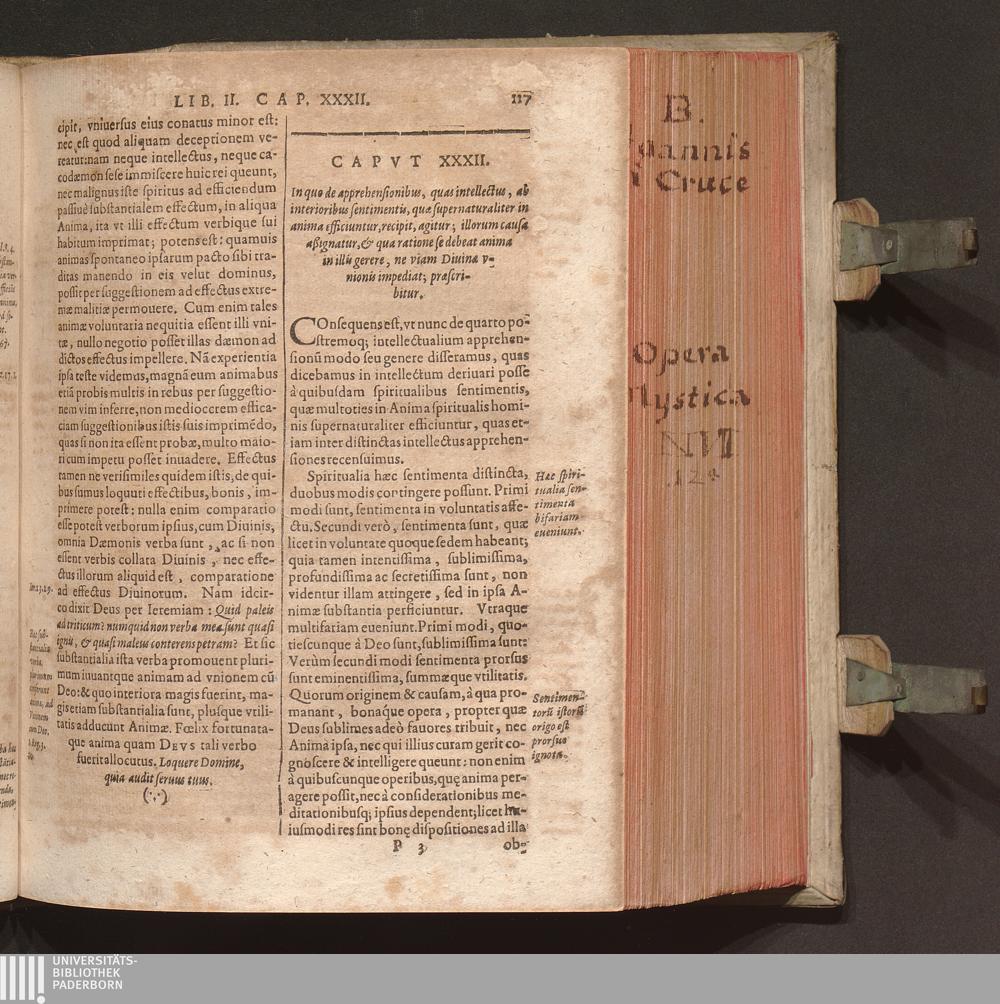 LIB. II. CAP. XXXII. 117
cipit, vniuersus eius conatus minor est:
nec est quod aliquam deceptionem ve-
reatur: nam neque intellectus, neque ca-
codæmon sese immiscere huic rei queunt,
nec malignus iste spiritus ad efficiendum
passiuè substantialem effectum, in aliqua
Anima, ita vt illi effectum verbique sui
habitum imprimat; potens est: quamuis
animas spontaneo ipsarum pacto sibi tra-
ditas manendo in eis velut dominus,
possit per suggestionem ad effectus extre-
mæ malitiæ permouere. Cum enim tales
animæ voluntaria nequitia essent illi vni-
tæ, nullo negotio posset illas dæmon ad
dictos effectus impellere. Nã experientia
ipsa teste videmus, magnã eum animabus
etiã probis multis in rebus per suggestio-
nem vim inferre, non mediocrem effica-
ciam suggestionibus istis suis imprimẽdo,
quas si non ita essent probæ, multo maio-
ri cum impetu posset inuadere. Effectus
tamen ne verisimiles quidem istis, de qui-
bus sumus loquuti effectibus, bonis, im-
primere potest: nulla enim comparatio
esse potest verborum ipsius, cum Diuinis,
omnia Dæmonis verba sunt, ac si non
essent verbis collata Diuinis, nec effe-
ctus illorum aliquid est, comparatione
ad effectus Diuinorum. Nam idcir-
co dixit Deus per Ieremiam: Quid paleis
ad triticum? numquid non verba mea sunt quasi
ignis, & quasi maleus conterens petram? Et sic
substantialia ista verba promouent pluri-
mum iuuantque animam ad vnionem cũ
Deo: & quo interiora magis fuerint, ma-
gis etiam substantialia sunt, plusque vtili-
tatis adducunt Animæ. Fœlix fortunata-
que anima quam DEVS tali verbo
fuerit allocutus. Loquere Domine,
quia audit seruus tuus.
(∵)
Ier. 23. 29.
CAPVT XXXII.
In quo de apprehensionibus, quas intellectus, ab
interioribus sentimentis, quæ supernaturaliter in
anima efficiuntur, recipit, agitur; illorum causa
aßignatur, & qua ratione se debeat anima
in illis gerere, ne viam Diuinæ v-
nionis impediat; præscri-
bitur.
COnsequens est, vt nunc de quarto po-
stremoq; intellectualium apprehen-
sionũ modo seu genere disseramus, quas
dicebamus in intellectum deriuari posse
à quibusdam spiritualibus sentimentis,
quæ multoties in Anima spiritualis homi-
nis supernaturaliter efficiuntur, quas et-
iam inter distinctas intellectus apprehen-
siones recensuimus.
Spiritualia hæc sentimenta distincta,
duobus modis contingere possunt. Primi
modi sunt, sentimenta in voluntatis affe-
ctu. Secundi verò, sentimenta sunt, quæ
licet in voluntate quoque sedem habeant;
quia tamen intensissima, sublimissima,
profundissima ac secretissima sunt, non
videntur illam attingere, sed in ipsa A-
nimæ substantia perficiuntur. Vtraque
multifariam eueniunt. Primi modi, quo-
tiescunque à Deo sunt, sublimissima sunt:
Verùm secundi modi sentimenta prorsus
sunt eminentissima, summæque vtilitatis.
Quorum originem & causam, à qua pro-
manant, bonaq́ue opera, propter quæ
Deus sublimes adeò fauores tribuit, nec
Anima ipsa, nec qui illius curam gerit co-
gnoscere & intelligere queunt: non enim
à quibuscunque operibus, quę anima per-
agere possit, nec à considerationibus me-
ditationibusq; ipsius dependent; licet hu-
iusmodi res sint bonę dispositiones ad illa
P 3 ob-
Hæc spiri-
tualia sen-
timenta
bifariam
eueniunt.
Sentimen-
torũ istorũ
origo est
prorsus
ignota.
B.
Joannis
Cruce
Opera
Mystica
UNIVERSITÄTS-
BIBLIOTHEK
PADERBORN